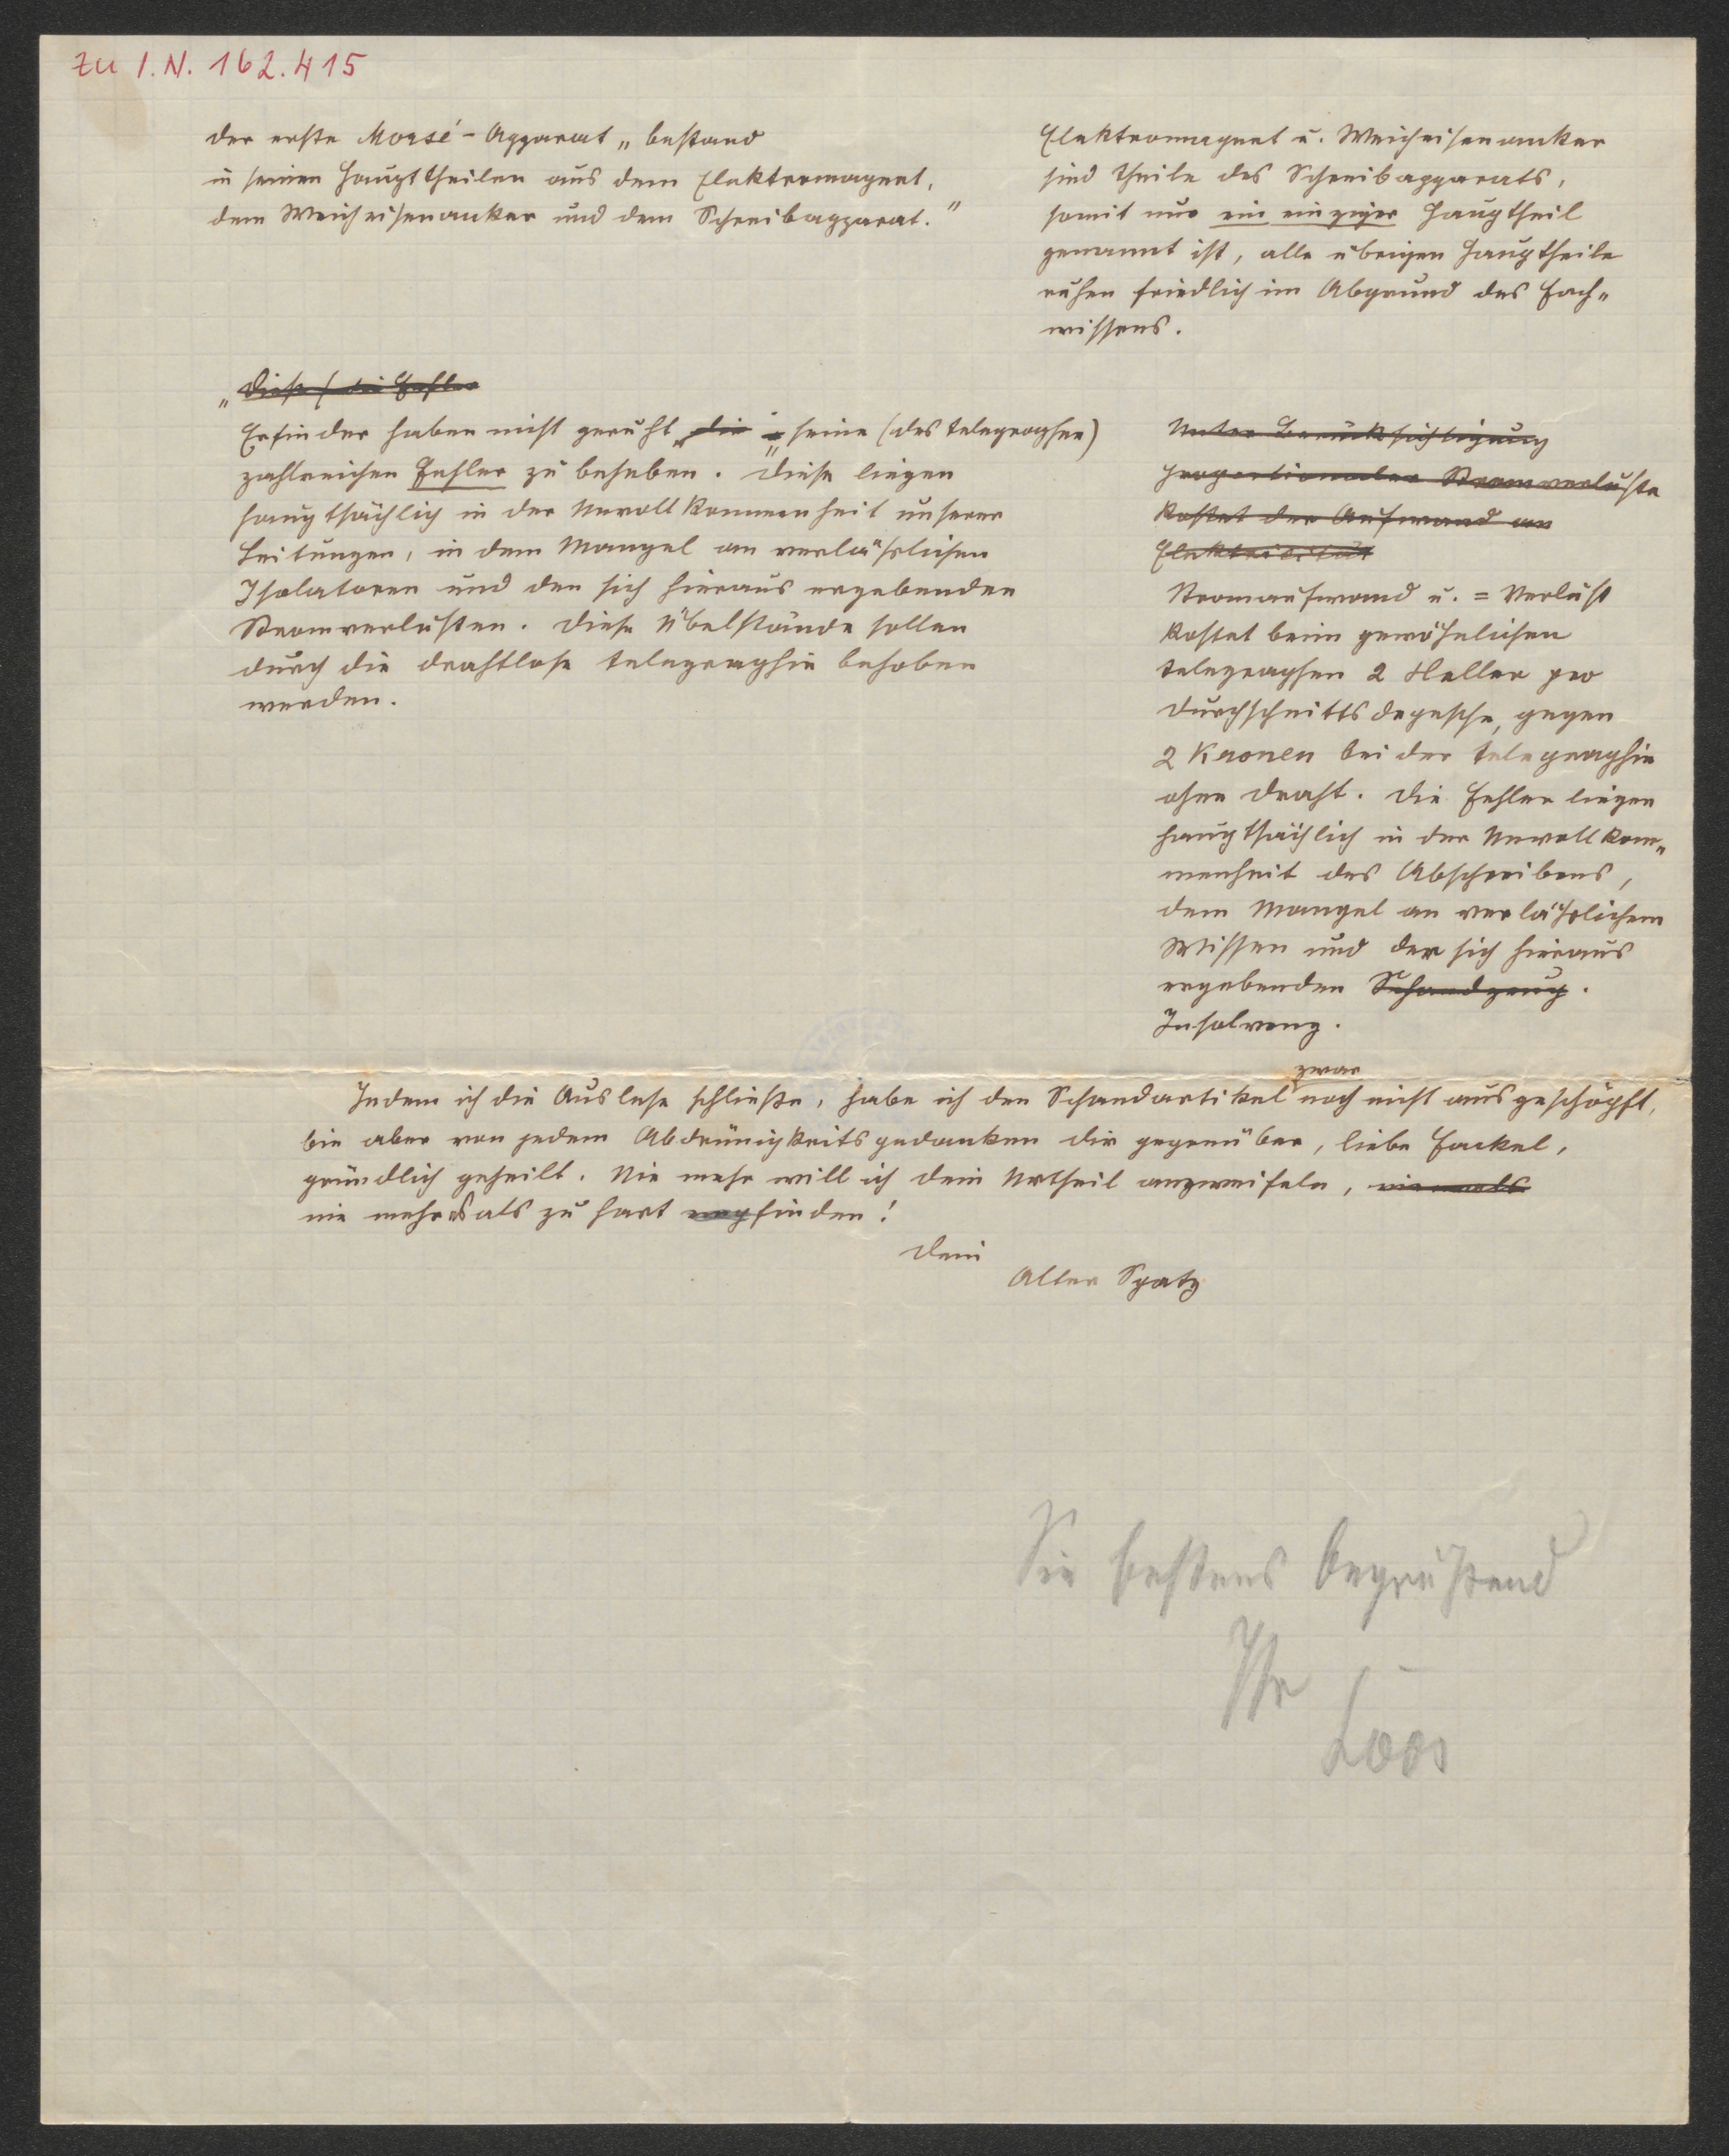 zu I.N. 162.415
Der erste Morsé-Apparat „bestand
in seinen Haupttheilen aus dem Elektromagnet,
dem Weicheisenanker und dem Schreibapparat."
Elektromagnet u. Weicheisenanker
sind Theile des Schreibapparats,
somit nur ein einziger Haupttheil
genannt ist, alle übrigen Haupttheile
ruhen friedlich im Abgrund des Fach-
wissens.
„Diese / die Fehler
Erfinder haben nicht geruht „die seine (des Telegraphen)
zahlreichen Fehler zu beheben. Diese liegen
hauptsächlich in der Unvollkommenheit unserer
Leitungen, in dem Mangel an verläßlichen
Isolatoren und den sich hieraus ergebenden
Stromverlusten. Diese Übelstände sollen
durch die drahtlose Telegraphie behoben
werden.
Unter Berücksichtigung
proportionaler Stromverluste
kostet der Aufwand an
Elektricität
Stromaufwand u. = Verlust
kostet beim gewöhnlichen
Telegraphen 2 Heller pro
Durchschnittsdepesche, gegen
2 Kronen bei der Telegraphie
ohne Draht. Die Fehler liegen
hauptsächlich in der Unvollkom-
menheit des Abschreibens,
dem Mangel an verläßlichem
Wissen und der sich hieraus
ergebenden Schandzeug.
Insolvenz.
zwar
Indem ich die Auslese schließe, habe ich den Schandartikel noch nicht ausgeschöpft,
bin aber von jedem Abdrünigkeitsgedanken dir gegenüber, liebe Fackel,
gründlich geheilt. Nie mehr will ich dein Urtheil anzweifeln, niemals
nie mehr es als zu hart empfinden!
Dein
Alter Spatz
Sie bestens begrüßend
Ihr
Loos